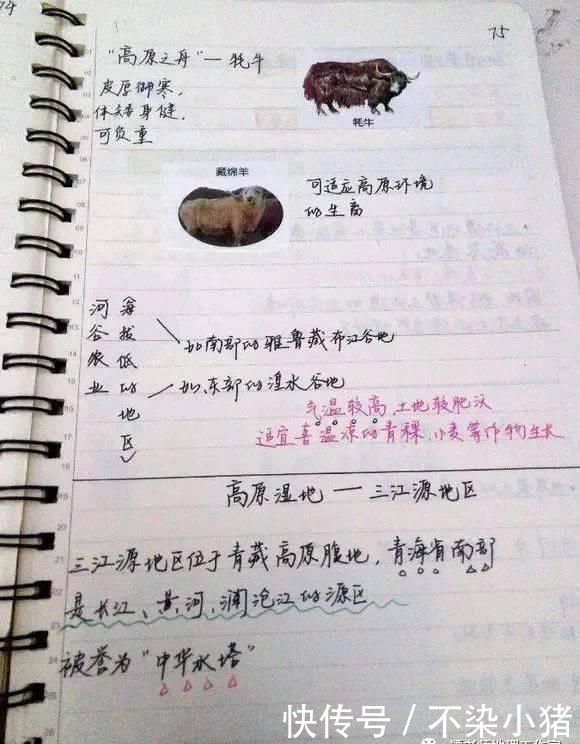 74
75
"高原之舟"—牦牛
皮厚御寒,
体矮身健,
可负重
牦牛
藏绵羊
可适应高原环境
的生畜
河谷农业
海拔低的地区
如南部的雅鲁藏布江谷地
如东部的湟水谷地
气温较高,土地较肥沃
适宜喜温凉的青稞,小麦等作物生长
高原湿地——三江源地区
三江源地区位于青藏高原腹地,青海省南部
是长江、黄河、澜沧江的源区
被誉为"中华水塔"
快传号 / 不染小猪